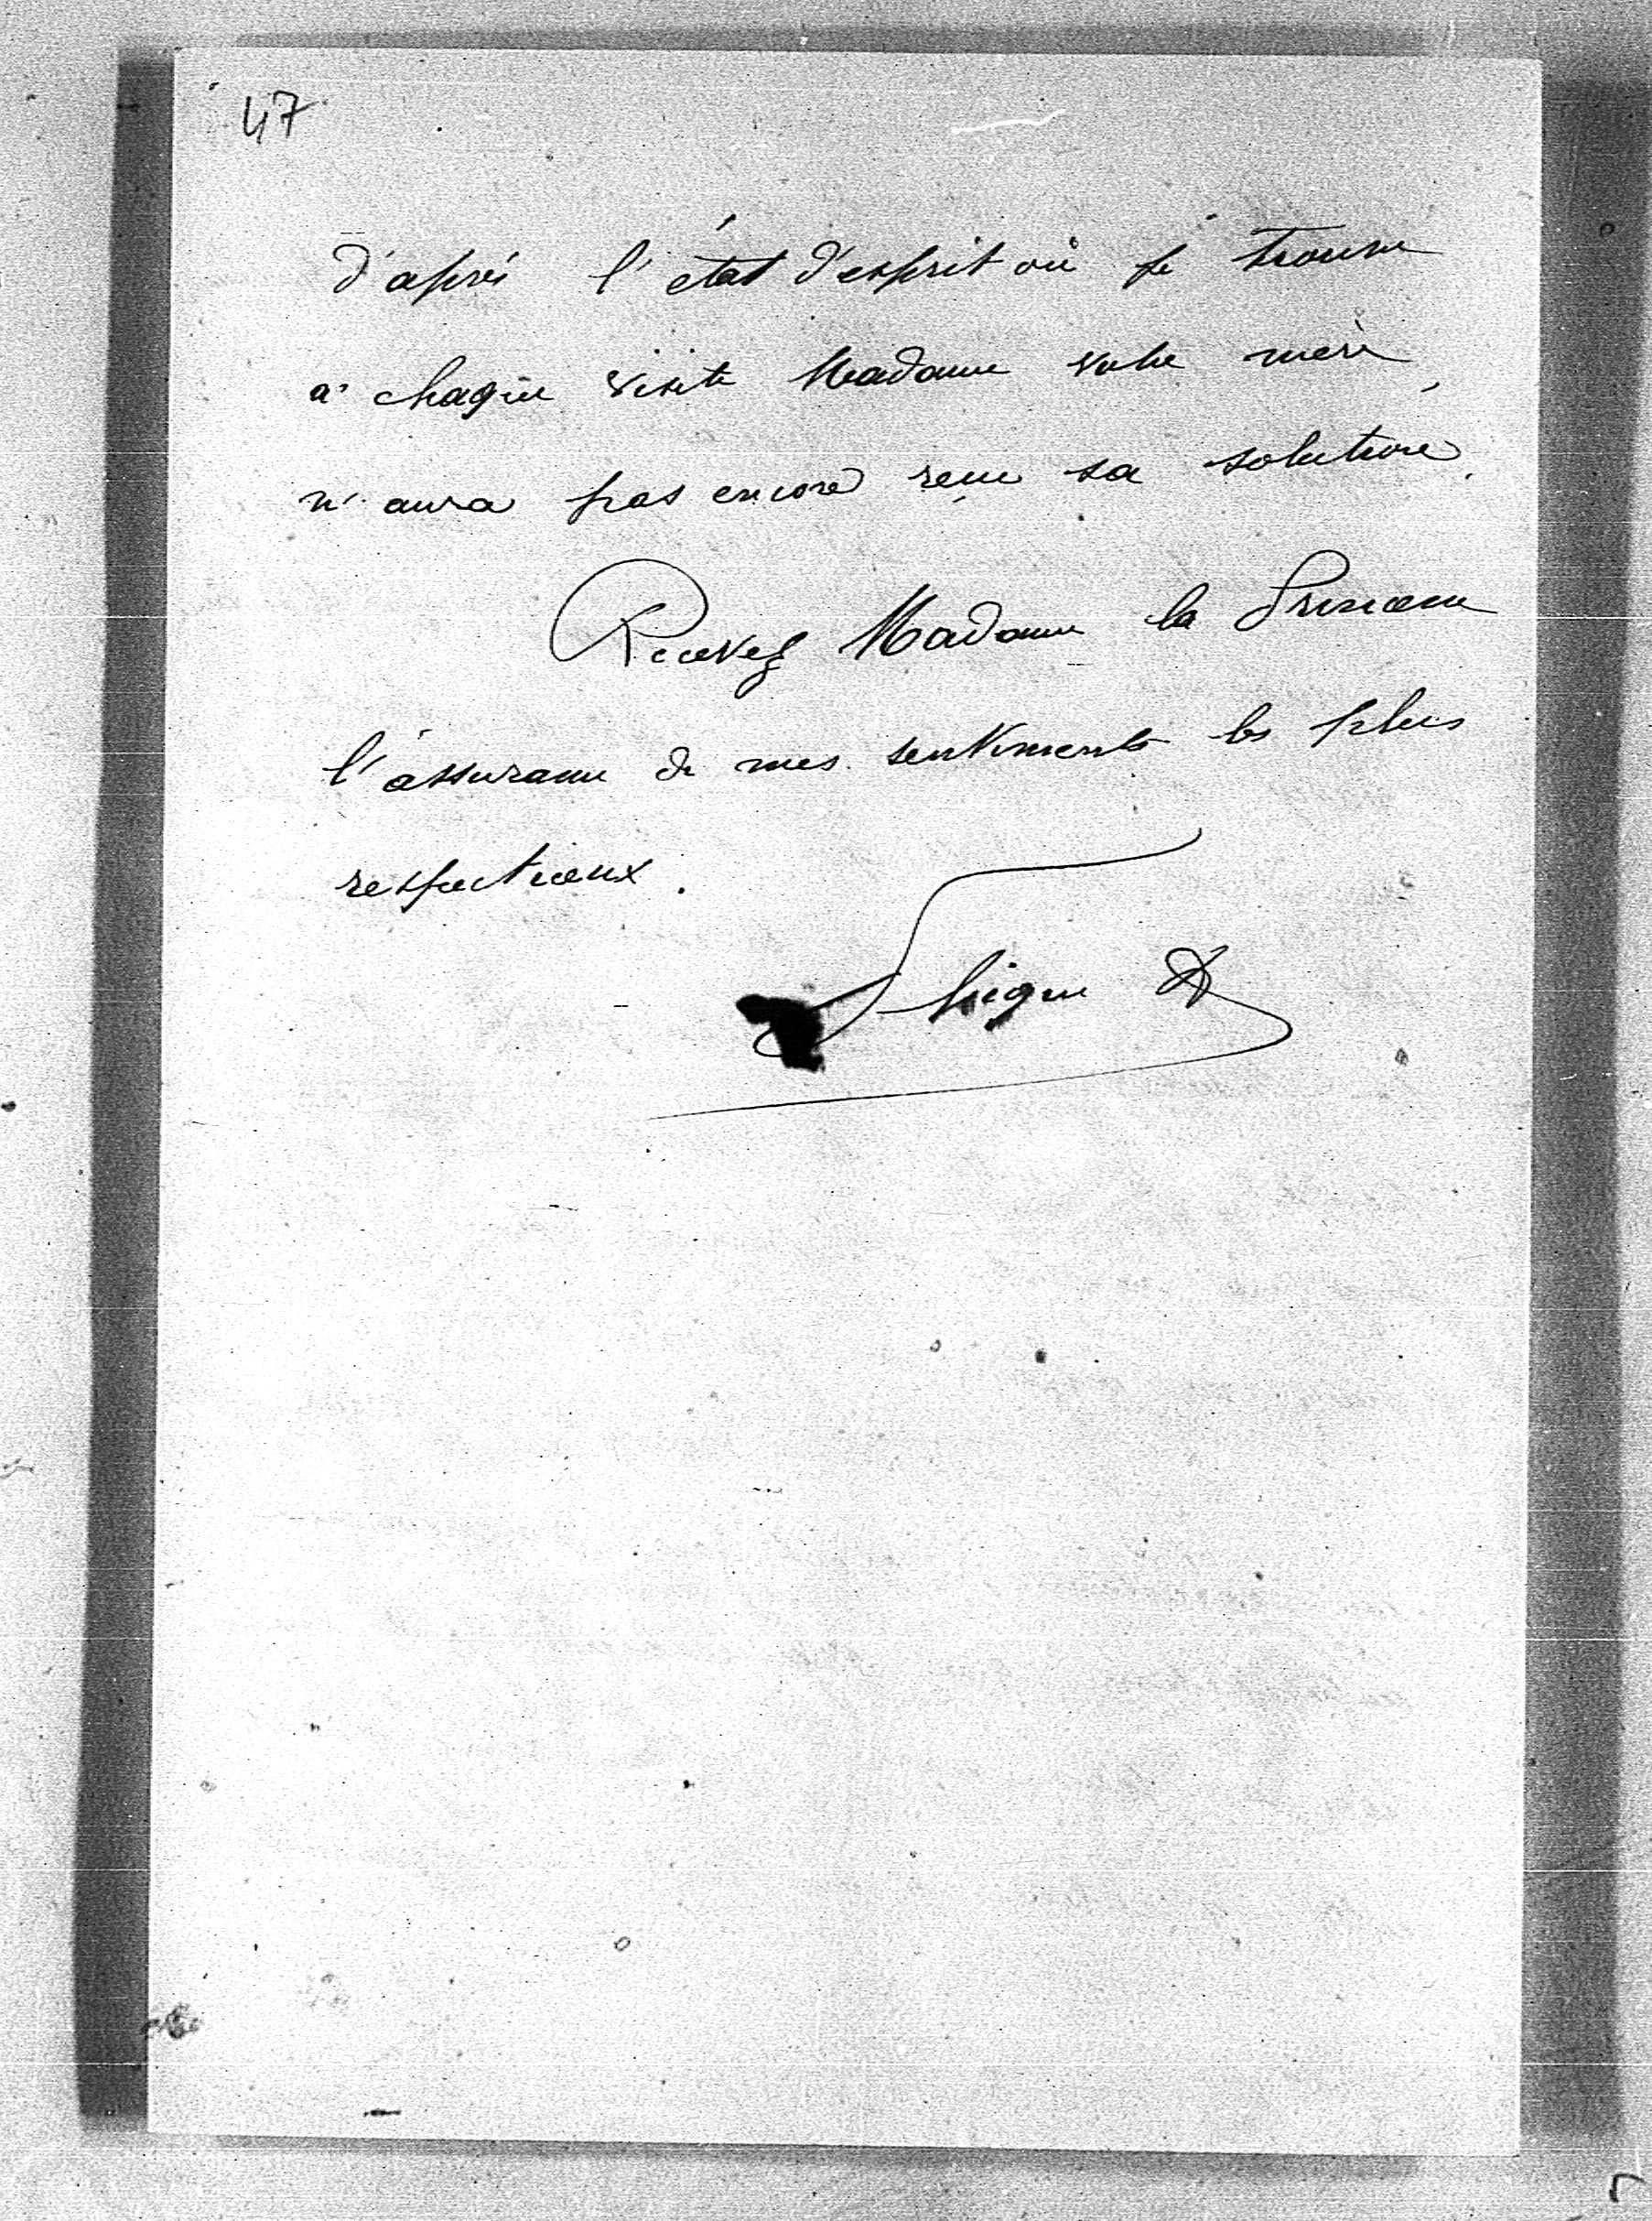 47
d'après l'état d'esprit où je trouve
a chaque visite Madame votre mère,
n'aura pas encore reçu sa solution.
Recevez Madame la Princesse
l'assurance de mes sentiments les plus
respectueux.